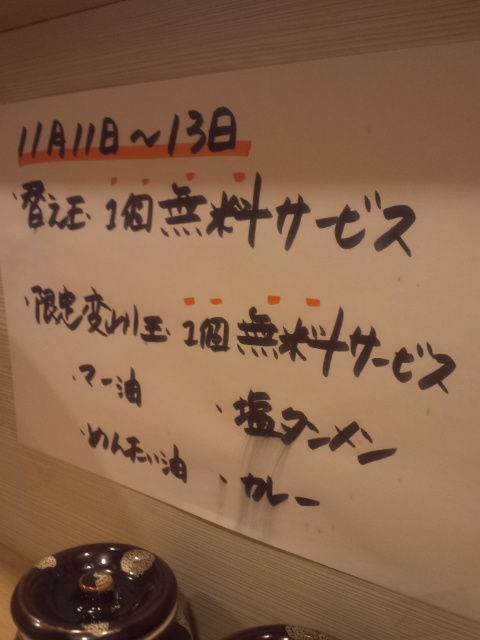 11月11日～13日
・替え玉 1個無料サービス
・限定変わり玉 1個無料サービス
・マー油
・塩ターメン
・めんたい油
・カレー